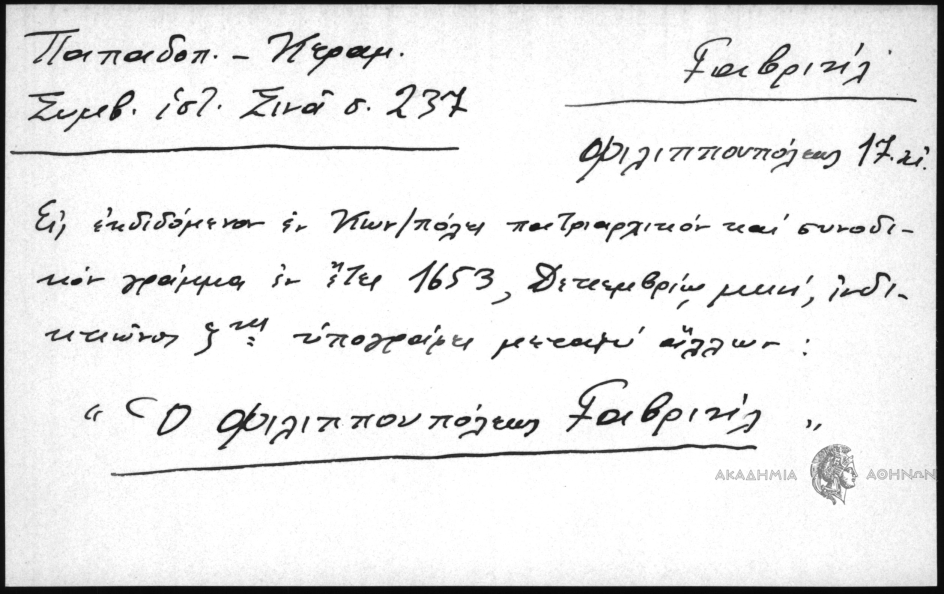 Παπαδοπ. - Κεραμ.
Συμβ. ἱστ. Σινᾶ σ. 237
Γαβριήλ
Φιλιππουπόλεως 17. αἰ.
Εἰς ἐκδιδόμενον ἐν Κων/πόλει πατριαρχικόν καί συνοδι-
κόν γράμμα ἐν ἔτει 1653, Δεκεμβρίῳ μηνί, ἰνδι-
κτιῶνος ζης ὑπογράφει μεταξύ ἄλλων :
“ Ὁ Φιλιππουπόλεως Γαβριήλ „
ΑΚΑΔΗΜΙΑ ΑΘΗΝΩΝ